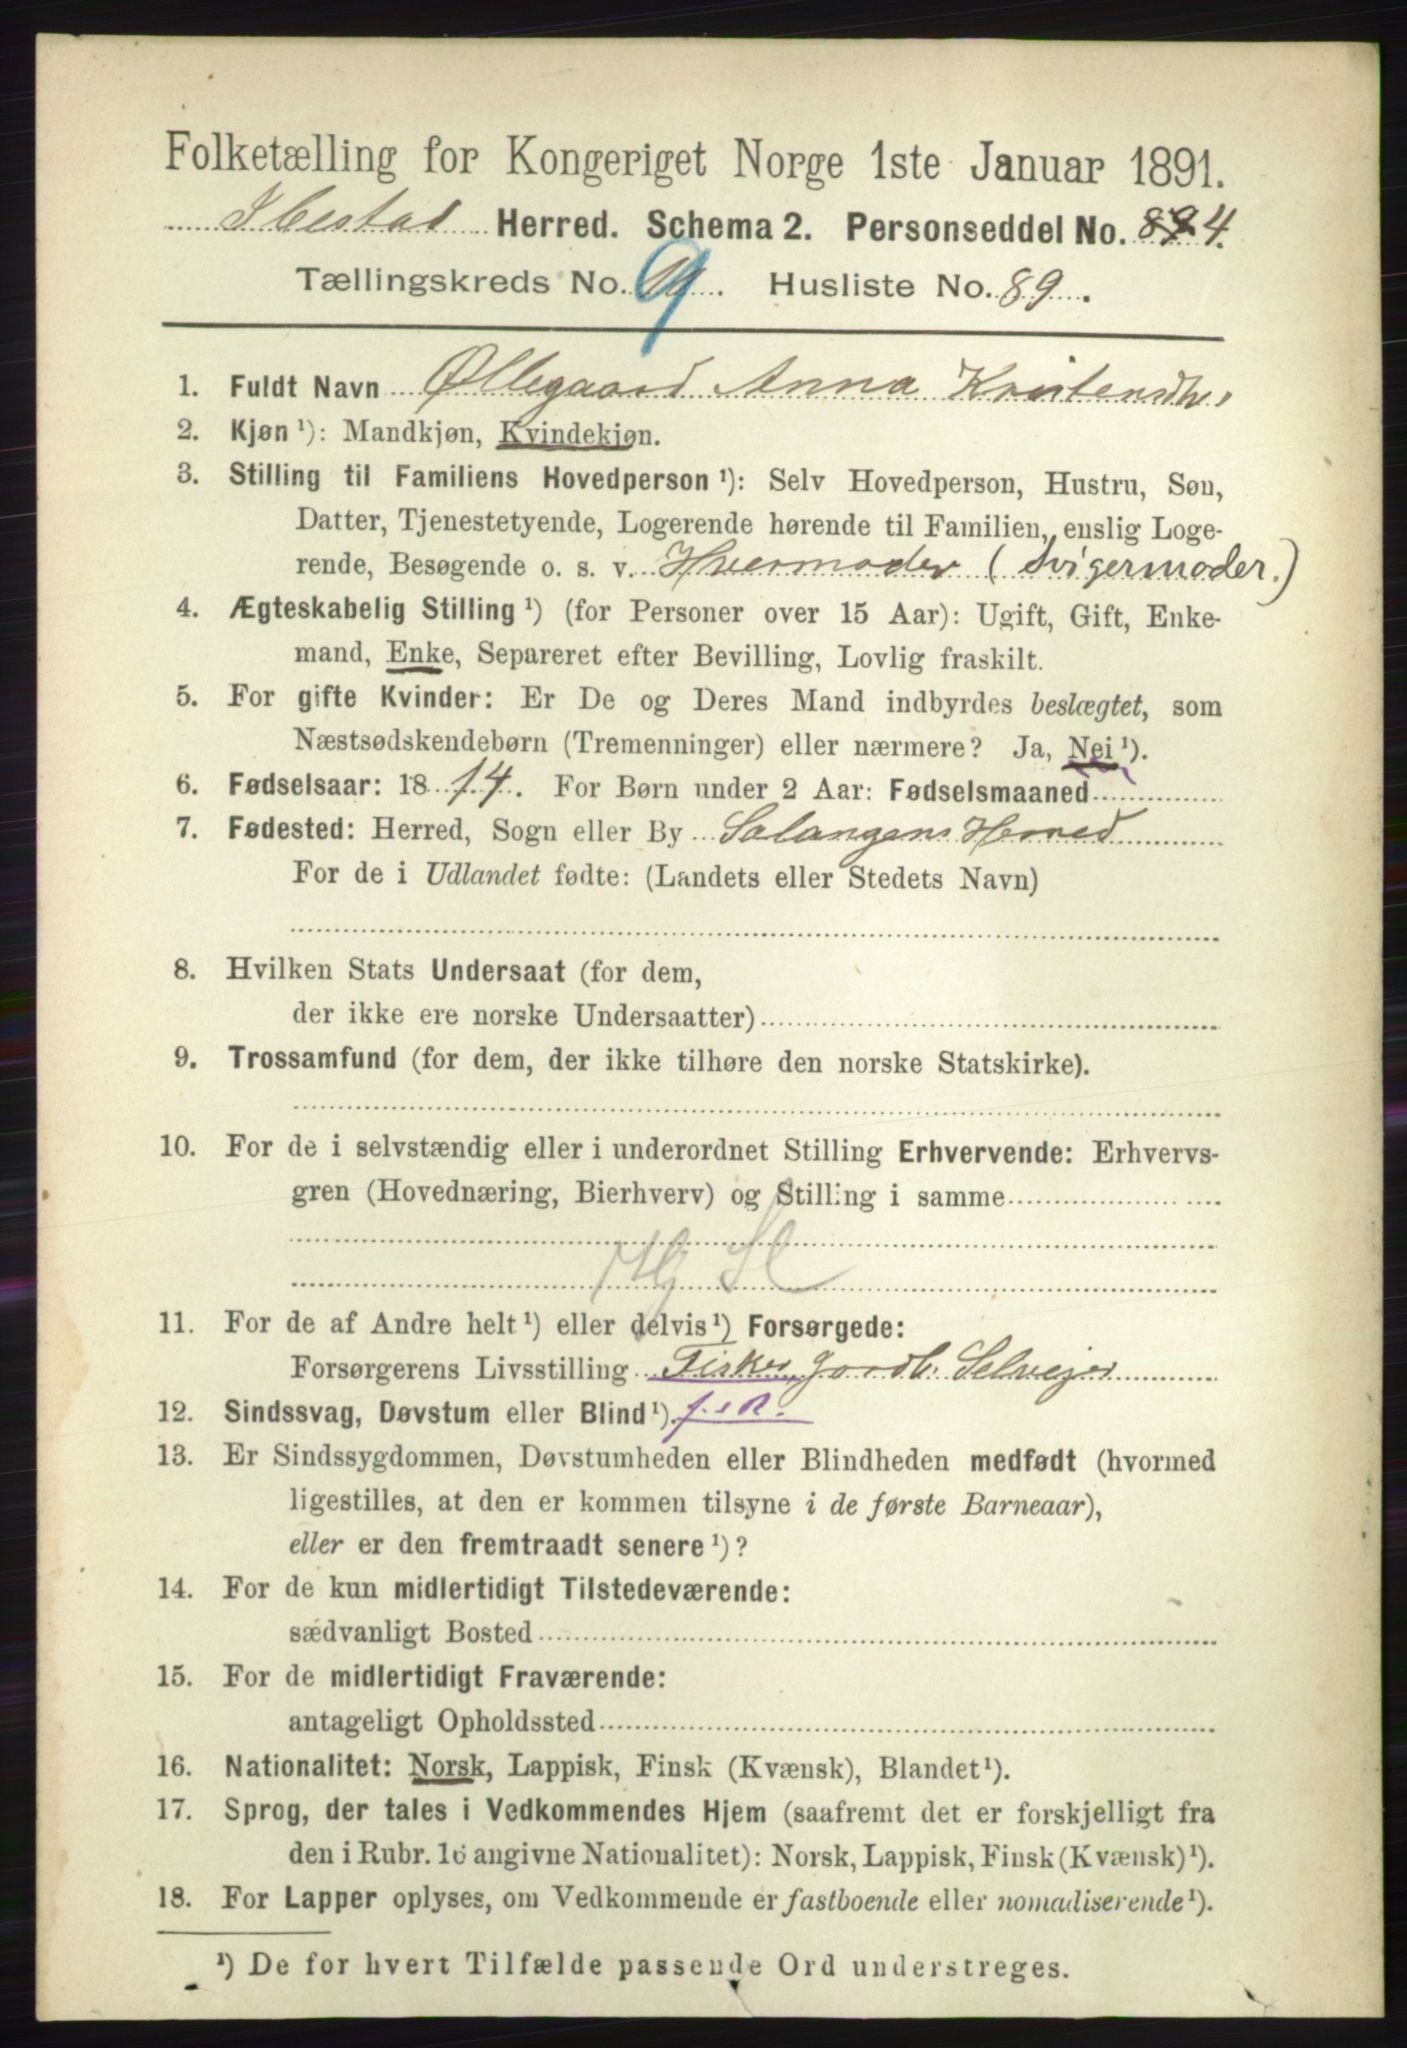 Folketælling for Kongeriget Norge 1ste Januar 1891.
Ibestad Herred. Schema 2. Personseddel No. 4.
Tællingskreds No. 9. Husliste No. 89.
1. Fuldt Navn Øllegaard Anna Kristensdtr
2. Kjøn ¹): Mandkjøn, Kvindekjøn.
3. Stilling til Familiens Hovedperson ¹): Selv Hovedperson, Hustru, Søn,
Datter, Tjenestetyende, Logerende hørende til Familien, enslig Loge-
rende, Besøgende o. s. v. Hvermoder (Svigermoder.)
4. Ægteskabelig Stilling ¹) (for Personer over 15 Aar): Ugift, Gift, Enke-
mand, Enke, Separeret efter Bevilling, Lovlig fraskilt.
5. For gifte Kvinder: Er De og Deres Mand indbyrdes beslægtet, som
Næstsødskendebørn (Tremenninger) eller nærmere? Ja, Nei ¹).
6. Fødselsaar: 1814. For Børn under 2 Aar: Fødselsmaaned
7. Fødested: Herred, Sogn eller By Salangens Herred
For de i Udlandet fødte: (Landets eller Stedets Navn)
8. Hvilken Stats Undersaat (for dem,
der ikke ere norske Undersaatter)
9. Trossamfund (for dem, der ikke tilhøre den norske Statskirke).
10. For de i selvstændig eller i underordnet Stilling Erhvervende: Erhvervs-
gren (Hovednæring, Bierhverv) og Stilling i samme
11. For de af Andre helt ¹) eller delvis ¹) Forsørgede:
Forsørgerens Livsstilling Fisker, Jordb. Selvejer
12. Sindssvag, Døvstum eller Blind ¹).
13. Er Sindssygdommen, Døvstumheden eller Blindheden medfødt (hvormed
ligestilles, at den er kommen tilsyne i de første Barneaar),
eller er den fremtraadt senere ¹)?
14. For de kun midlertidigt Tilstedeværende:
sædvanligt Bosted
15. For de midlertidigt Fraværende:
antageligt Opholdssted
16. Nationalitet: Norsk, Lappisk, Finsk (Kvænsk), Blandet ¹).
17. Sprog, der tales i Vedkommendes Hjem (saafremt det er forskjelligt fra
den i Rubr. 16 angivne Nationalitet): Norsk, Lappisk, Finsk (Kvænsk) ¹).
18. For Lapper oplyses, om Vedkommende er fastboende eller nomadiserende ¹).
¹) De for hvert Tilfælde passende Ord understreges.